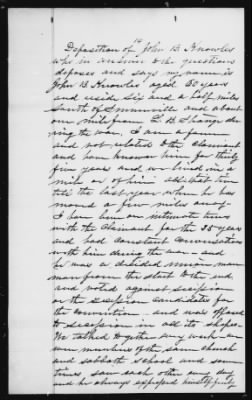 Deposition of John B. Knowles
who in answer to the questions
deposes and says my name is
John B. Knowles aged 60 years
and reside six and a half miles
South of Summerville and about
one mile from L. B. during
the war. I am a farmer
and not related to the claimant
and have known him for thirty
five years and we lived in a
mile of him all that time
till the last year when he has
moved a few miles away.
I have been on intimate terms
with the Claimant for the 35 years
and had constant conversation
with him during the war and
he was a decided union man
from the start to the end
and voted against secession
or the secession candidates for
the convention and was opposed
to secession in all its shapes.
We talked together every week
were members of the same church
and sabbath school and some
times saw each other every day
and he always expressed himself fully